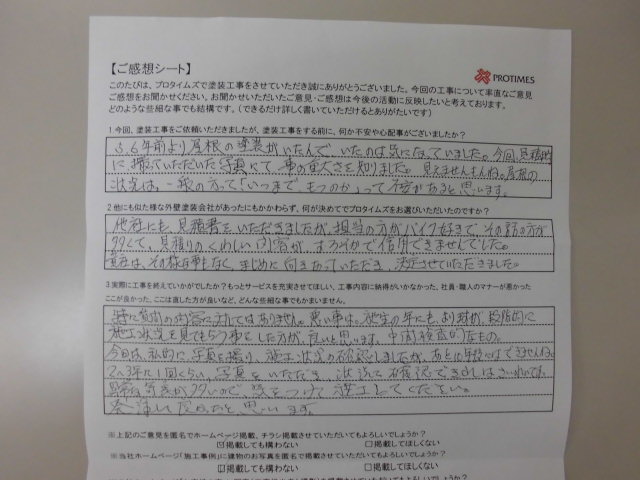 【ご感想シート】
PROTIMES
このたびは、プロタイムズで塗装工事をさせていただき誠にありがとうございました。今回の工事について率直なご意見
ご感想をお聞かせください。お聞かせいただいたご意見・ご感想は今後の活動に反映したいと考えております。
どのような些細な事でも結構です。（できるだけ詳しく書いていただけるとありがたいです）
1 今回、塗装工事をご依頼いただきましたが、塗装工事をする前に、何か不安や心配事がございましたか？
5,6年前より屋根の塗装がいたんでいたのは気になっていました。今回見積時
に撮っていただいた写真にて、事の重大さを知りました。見えませんもんね。屋根の
状況は。一般の方って「いつまでもつのか」って不安があると思います。
2 他にも似た様な外壁塗装会社があったにもかかわらず、何が決めてでプロタイムズをお選びいただいたのですか？
他社にも、見積書をいただきましたが、担当の方がバイク好きで、その話の方が
多くて、見積りのくわしい内容が、おろそかで信用できませんでした。
貴社は、その様な事もなく、まじめに向きあっていただき、決定させていただきました。
3 実際に工事を終えていかがでしたか？もっとサービスを充実してほしい、工事内容に納得がいかなかった、社員・職人のマナーが悪かった
ここが良かった、ここは直した方が良いなど、どんな些細な事でもかまいません。
特に質問の内容に対してはありません。悪い事は。施主の年にも、よりますが、段階的に
施工状況を見てもらう事をした方が、良いと思います。中間検査的なもの。
今回は、私的に、写真を撮り、施工状況の確認しましたが、あと10年後にはできませんね。
2〜3年に1回くらい、写真をいただき、状況を確認できればさいわいです。
気をつけて施工してください。
と思います。
※上記のご意見を匿名でホームページ掲載、チラシ掲載させていただいてもよろしいでしょうか？
☑掲載しても構わない □掲載してほしくない
※当社ホームページ「施工事例」に建物のお写真を匿名で掲載させていただいてもよろしいでしょうか？
☑掲載しても構わない □掲載してほしくない